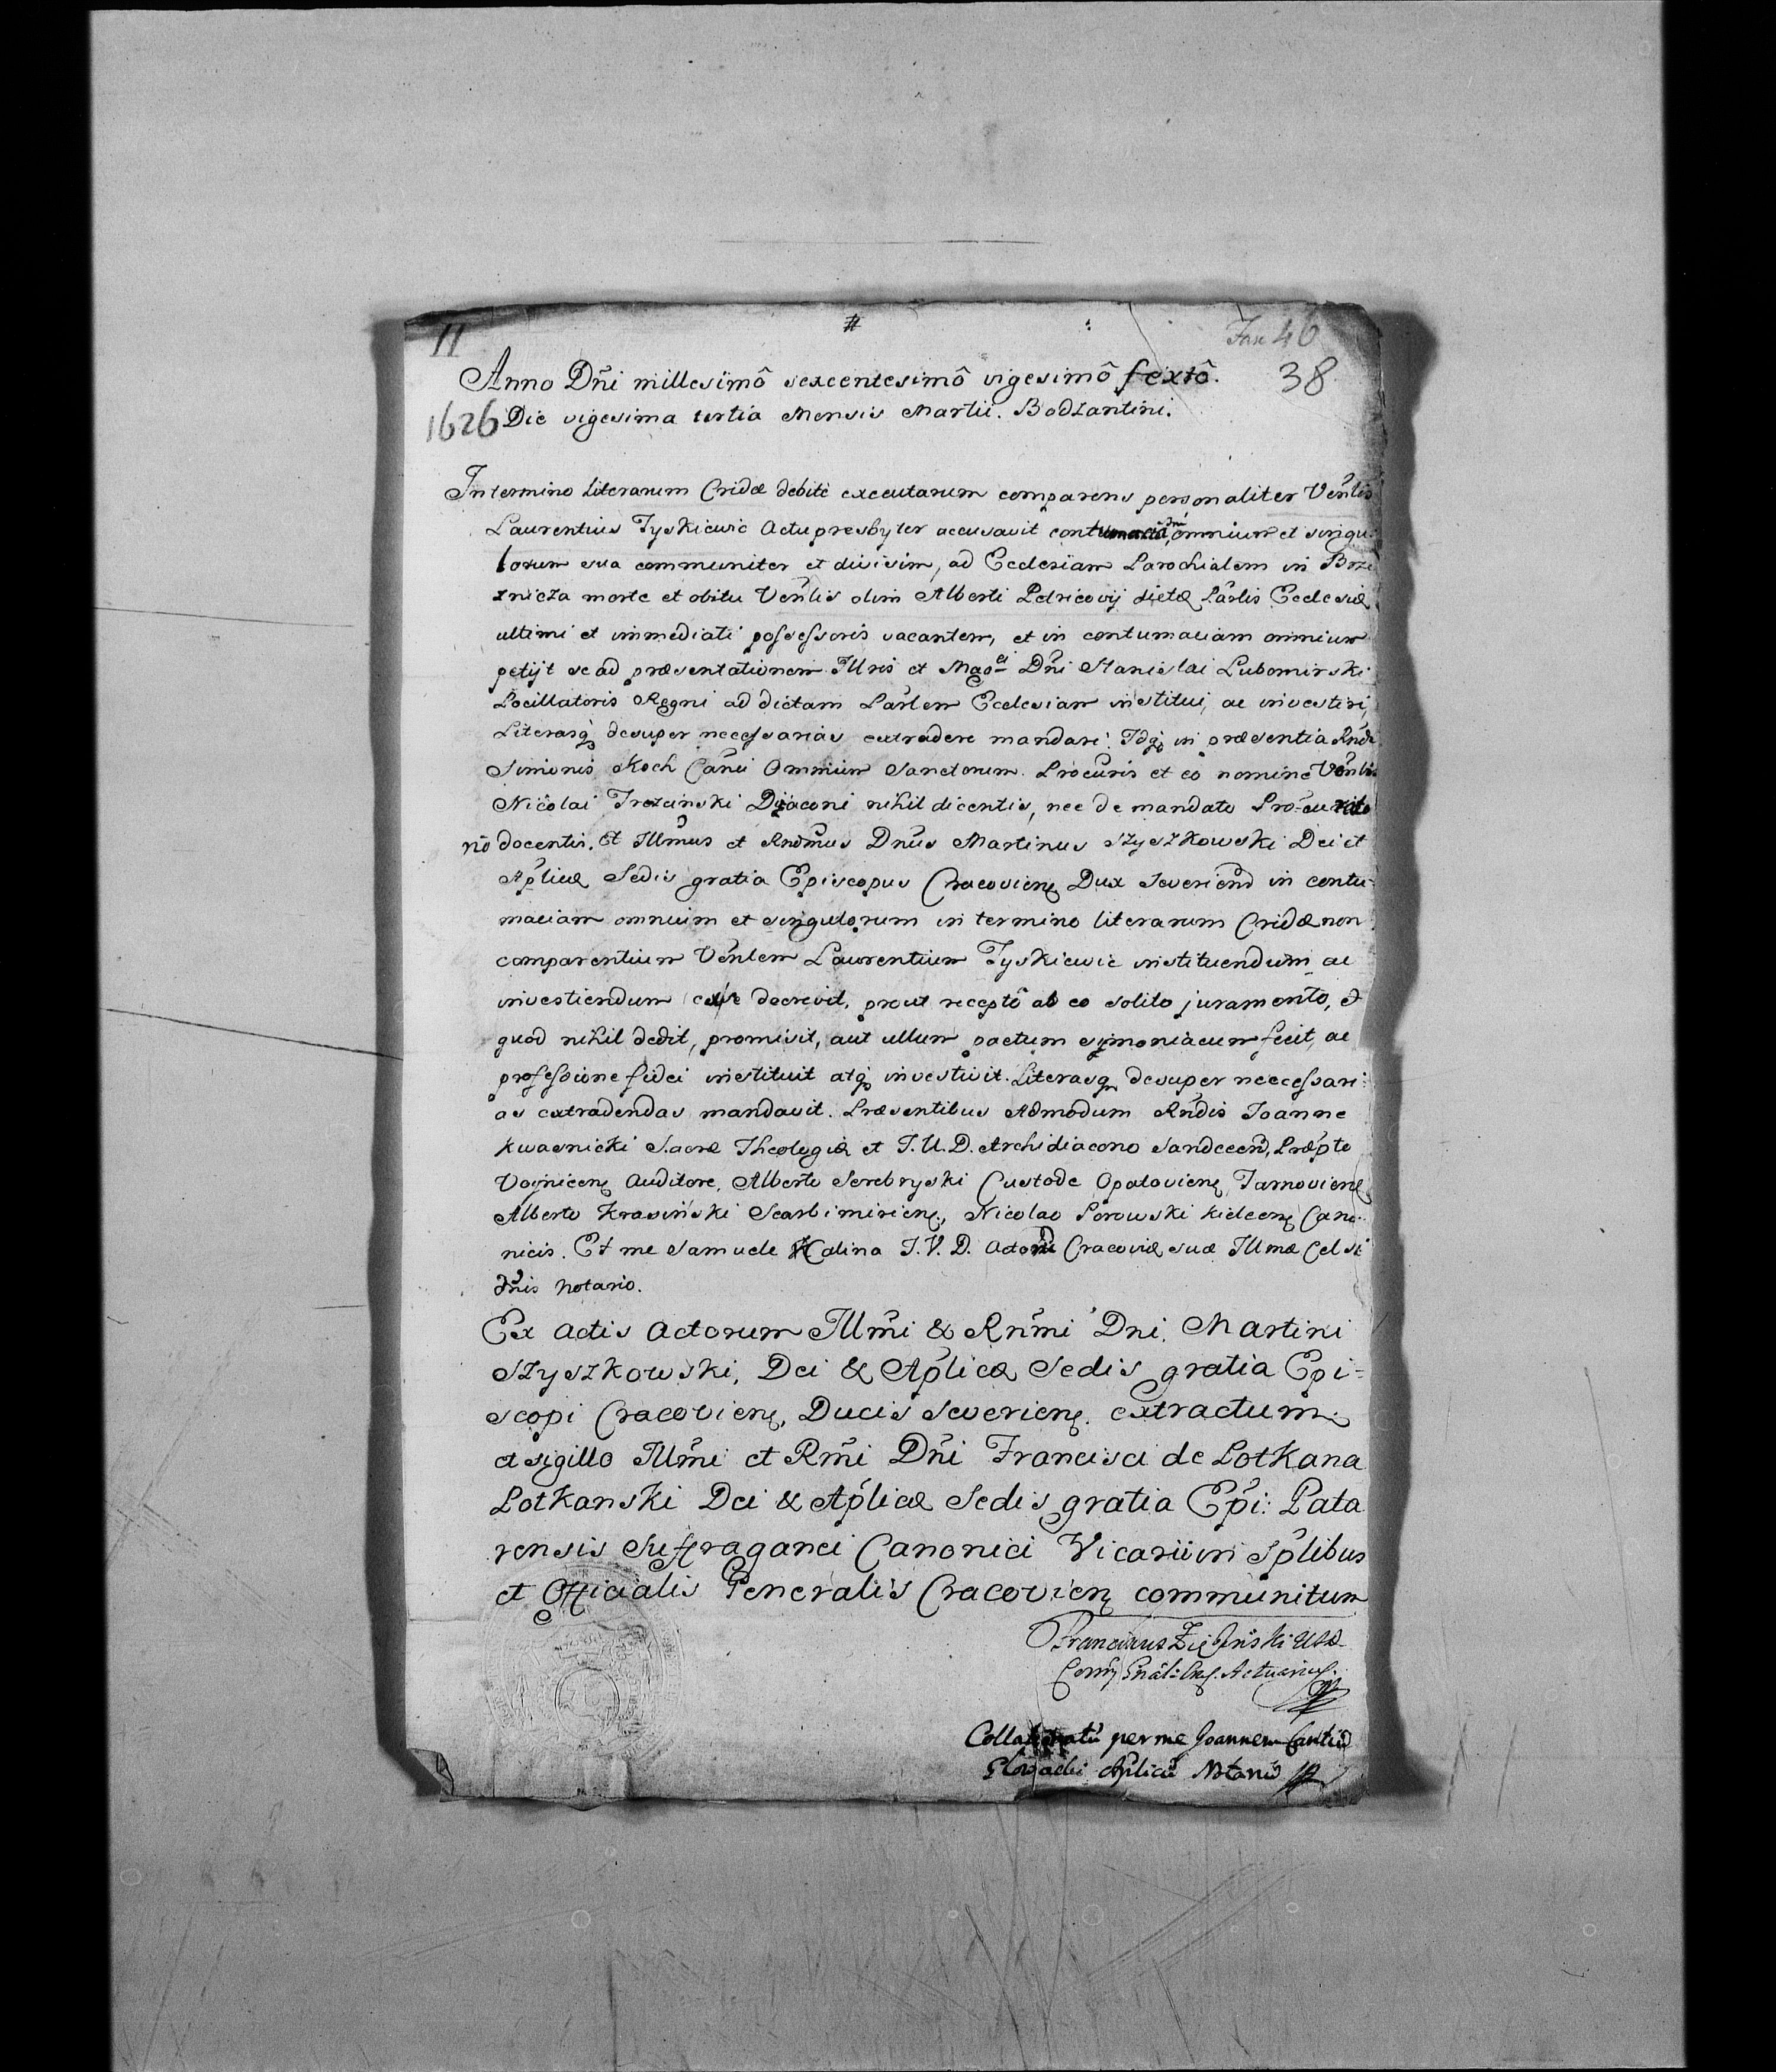 11 # Fasc 46
Anno Dñi millesimô sexcentesimô vigesimô sextô. 38
1626 Die vigesima tertia Mensis Martii. Bodzantini.
In termino literarum Cridæ debitè executarum comparens personaliter Vēnlis
Laurentius Tyskiewic Actu presbyter accusavit contumaciã omnium et singu
lorum sua communiter et divisim, ad Ecclesiam Parochialem in Brze
znicza morte et obitu Vēnlis olim Alberti Petricovij dictæ Pārlis Ecclesiæ
ultimi et immediati possessoris vacantem, et in contumaciam omnium
petijt se ad præsentationem Illris et Mag̃ci Dñi Stanislai Lubomirski
Pocillatoris Regni ad dictam Pārlem Ecclesiam institui, ac investiri,
Literasq̨ desuper necessarias extradere mandari. Idq̨ in præsentia Rndi
Simonis Koch Cañci Omnium Sanctorum Procūris et eo nomine Vēnlis
Nicolai Trzcinski Diaconi nihil dicentis, nec de mandato Pro-
nō docentis. Et Illmus et Rndmus Dñus Martinus Szyszkowski Dei et
Aplicæ Sedis gratia Episcopus Cracovien̨ Dux Severien̄ in contu-
maciam omnium et singulorum in termino literarum Cridæ non
comparentium Vēnlem Laurentium Tyskiewic instituendum ac
investiendum decrevit, prout receptô ab eo solito juramento, &
quod nihil dedit, promisit, aut ullum pactum symoniacum fecit, ac
professione fidei instituit atq̨ investivit. Literasq̨ desuper neccessari-
as extradendas mandavit. Præsentibus Admodum Rndis Joanne
Kwasnicki Sacræ Theologiæ et J.U.D. Archidiacono Sandecen̄, Præpto
Voynicen̨ Auditore, Alberto Serebryski Custode Opatovien̨, Tarnovien̨
Alberto Krasiński Scarbimirien̨, Nicolao Porowski Kielcen̨ Cano-
nicis. Et me Samuele Kalina J.V.D. Cracoviæ suæ Illmæ Celsi
dñis Notario.
Ex Actis Actorum Illm̃i & Rnm̃i Dni. Martini
Szyszkowski, Dei & Aplicæ Sedis gratia Epi=
scopi Cracovien̨, Ducis Severien̨. extractum
et sigillo Illm̃i et Rm̃i Dñi Francisci de Potkana
Potkanski Dei & Aplicæ Sedis gratia Epi: Pata
rensis Suffraganei Canonici Vicarii in Splibus
et Officialis Generalis Cracovien̨ communitum
Franciscus
Actuarius.
Collationatũ per me Joannem Cantiũ
Aplicũ Notariũ